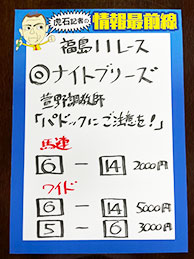 虎石記者の
情報最前線
福島11レース
◎ナイトブリーズ
菅野調教師
「パドックにご注意を!」
馬連
6 － 14 2000円
ワイド
6 － 14 5000円
5 － 6 3000円